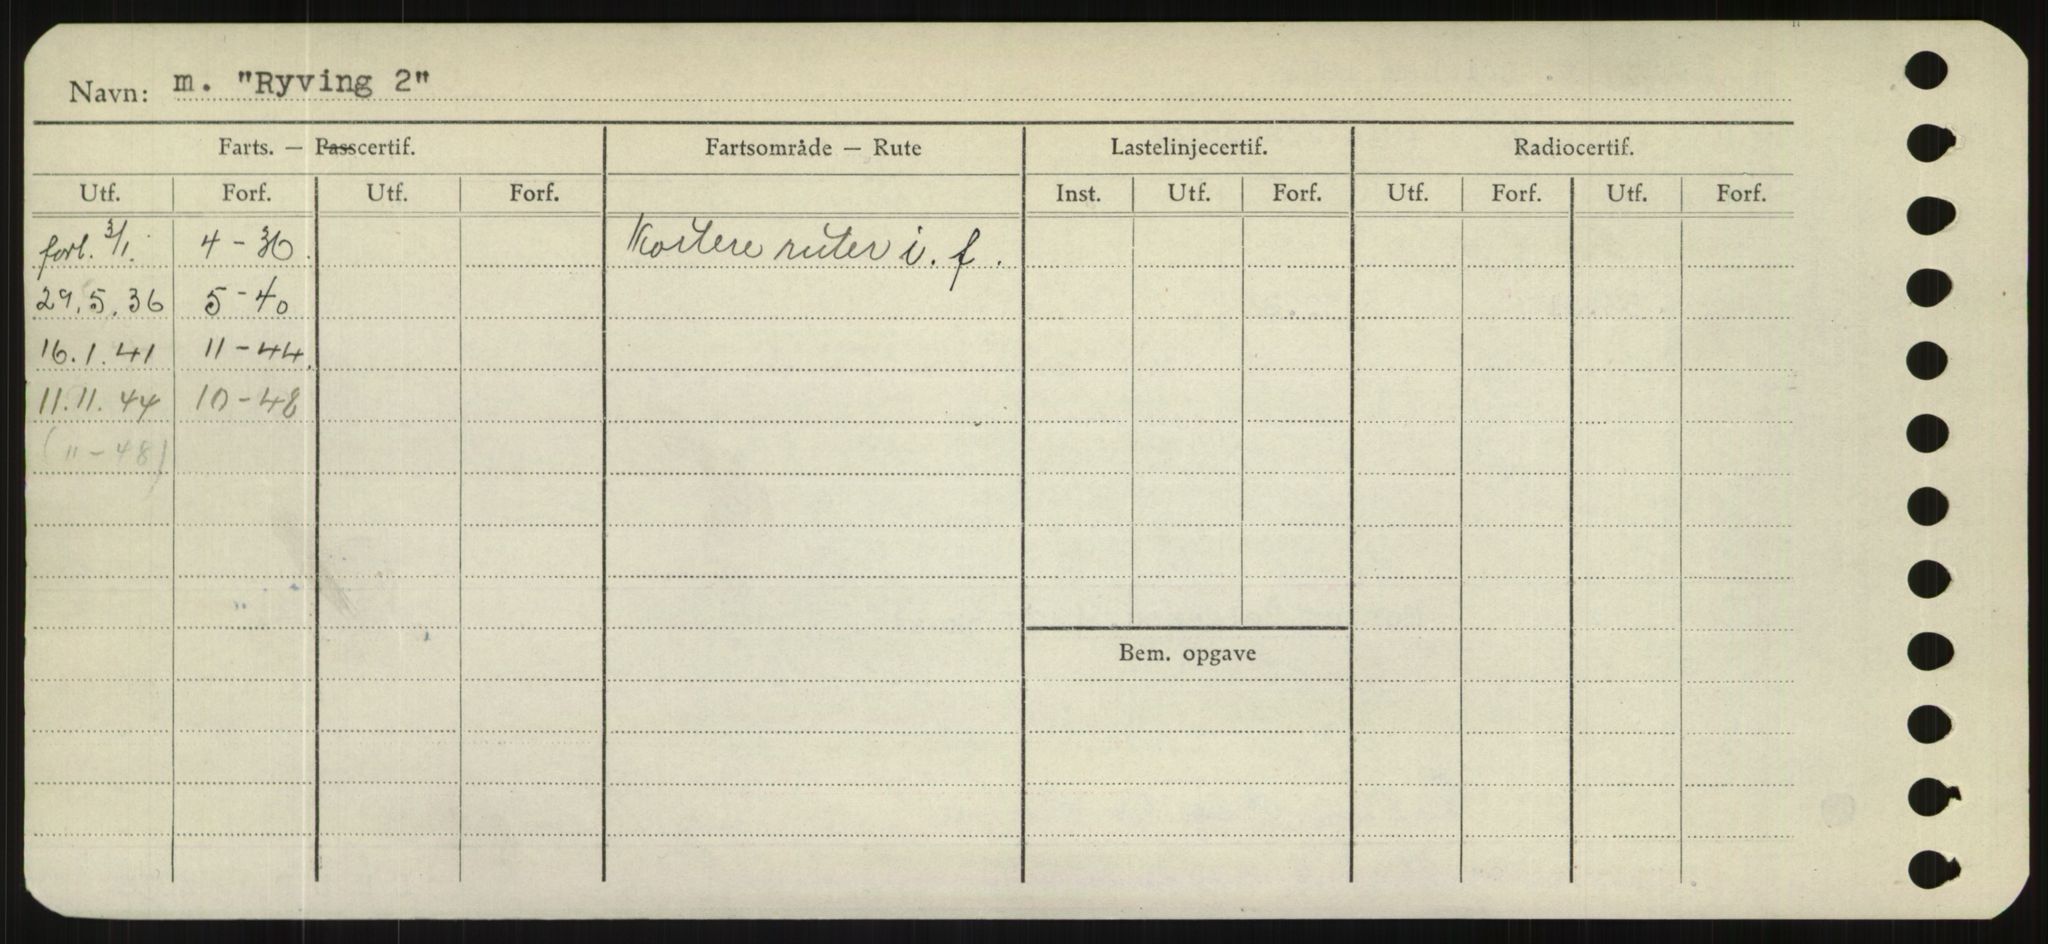 Navn: m. "Ryving 2"
Farts. — Passcertif. Fartsområde — Rute Lastelinjecertif. Radiocertif.
Utf. Forf. Utf. Forf. Inst. Utf. Forf. Utf. Forf. Utf. Forf.
forl. 3/1. 4-36. Kortere ruter i. f.
29.5.36 5-40
16.1.41 11-44.
11.11.44 10-48
(11-48)
Bem. opgave